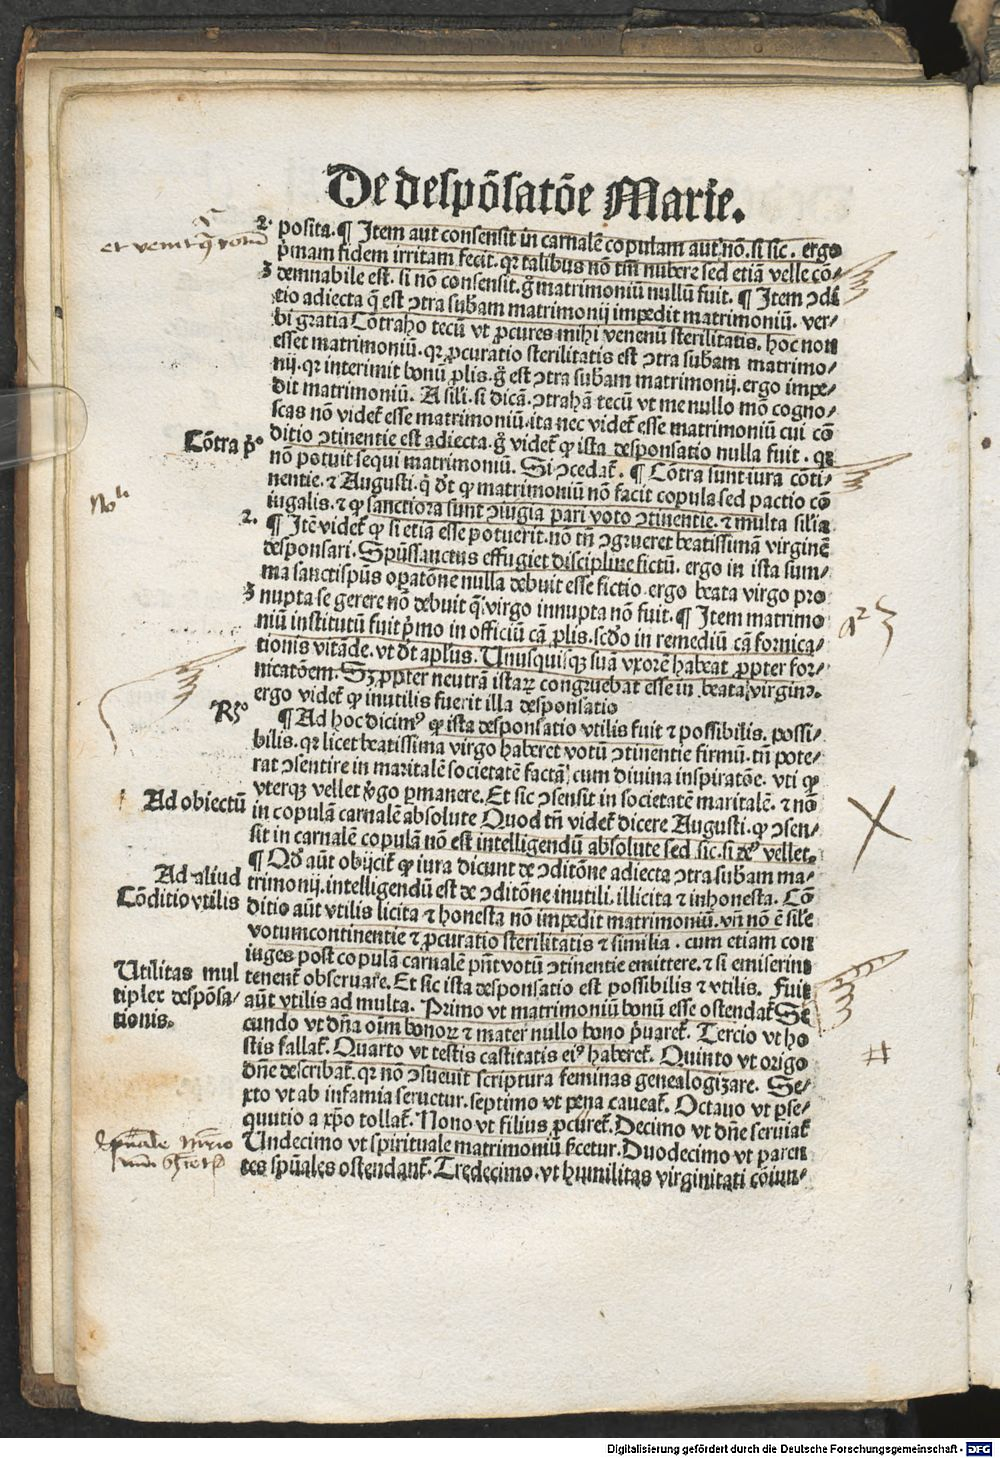 De despõsatõe Marie.
2. posita. ¶ Item aut consensit in carnalẽ copulam aut nõ. si sic. ergo
p̃mam fidem irritam fecit. qꝛ talibus nõ tm̃ nubere sed etiã velle cõ⸗
3 demnabile est. si nõ consensit. g̃ matrimoniũ nullũ fuit. ¶ Item ꝯdi
tio adiecta q̃ est ꝯtra subam matrimonij impedit matrimoniũ. ver⸗
bi gratia Cõtraho tecũ vt ꝓcures mihi venenũ sterilitatis. hoc non
esset matrimoniũ. qꝛ ꝓcuratio sterilitatis est ꝯtra subam matrimo⸗
nij. qꝛ interimit bonũ ꝓlis. g̃ est ꝯtra subam matrimonij. ergo impe⸗
dit matrimoniũ. A sili. si dicã. ꝯtrahã tecũ vt me nullo mõ cogno⸗
scas nõ videt̃ esse matrimoniũ. ita nec videt̃ esse matrimoniũ cui cõ
ditio ꝯtinentie est adiecta. g̃ videt̃ ꝙ ista desponsatio nulla fuit. qꝛ
Cõtra p̃ᵒ
nõ potuit sequi matrimoniũ. Si ꝯcedat̃. ¶ Cõtra sunt iura cõti⸗
nentie. ⁊ Augusti. q̃ dt̃ ꝙ matrimoniũ nõ facit copula sed pactio cõ
iugalis. ⁊ ꝙ sanctiora sunt ꝯiugia pari voto ꝯtinentie. ⁊ multa silia
2. ¶ Itẽ videt̃ ꝙ si etiã esse potuerit. nõ tñ ꝯgrueret beatissimã virginẽ
desponsari. Spũssanctus effugiet discipline fictũ. ergo in ista sum⸗
ma sanctispũs oꝑatõne nulla debuit esse fictio. ergo beata virgo pro
3 nupta se gerere nõ debuit q̃ virgo innupta nõ fuit. ¶ Item matrimo
niũ institutũ fuit p̃mo in officiũ cã ꝓlis. scd̃o in remediũ cã fornica⸗
tionis vitãde. vt dt̃ apl̃us. Unusquisqꝫ suã vxorẽ habeat ꝓpter for⸗
nicatõem. Sꝫ ꝓpter neutrã istaꝝ congruebat esse in beata virgine.
ergo videt̃ ꝙ inutilis fuerit illa desponsatio
Rꝫᵒ
¶ Ad hoc dicimꝰ ꝙ ista desponsatio vtilis fuit ⁊ possibilis. possi⸗
bilis. qꝛ licet beatissima virgo haberet votũ ꝯtinentie firmũ. tñ pote⸗
rat ꝯsentire in maritalẽ societatẽ factã cum diuina inspiratõe. vti ꝙ
vterqꝫ vellet v̾go ꝑmanere. Et sic ꝯsensit in societatẽ maritalẽ. ⁊ nõ
Ad obiectũ
in copulã carnalẽ absolute Quod tñ videt̃ dicere Augusti. ꝙ ꝯsen⸗
sit in carnalẽ copulã nõ est intelligendũ absolute sed sic. si deꝰ vellet.
¶ Qd̾ aũt obijcit̃ ꝙ iura dicunt de ꝯditõne adiecta ꝯtra subam ma⸗
Ad aliud
trimonij. intelligendũ est de ꝯditõne inutili. illicita ⁊ inhonesta. Cõ
Cõditio vtilis
ditio aũt vtilis licita ⁊ honesta nõ impedit matrimoniũ. vñ nõ ẽ sile
votumcontinentie ⁊ ꝓcuratio sterilitatis ⁊ similia. cum etiam con
iuges post copulã carnalẽ pñt votũ ꝯtinentie emittere. ⁊ si emiserint
Utilitas mul
tiplex despõsa⸗
tionis.
tenent̃ obseruare. Et sic ista desponsatio est possibilis ⁊ vtilis. Fuit
aũt vtilis ad multa. Primo vt matrimoniũ bonũ esse ostendat̃ Se
cundo vt dña oĩm bonoꝝ ⁊ mater nullo bono p̃uaret̃. Tercio vt ho
stis fallat̃. Quarto vt testis castitatis eiꝰ haberet̃. Quinto vt origo
dñe describat̃. qꝛ nõ ꝯsueuit scriptura feminas genealogizare. Se⸗
xto vt ab infamia seruetur. septimo vt pena caueat̃. Octauo vt ꝑse⸗
quutio a xp̃o tollat̃. Nono vt filius ꝓcuret̃. Decimo vt dñe seruiat̃
Undecimo vt spirituale matrimoniũ fcetur. Duodecimo vt paren
tes spũales ostendant̃. Tredecimo. vt humilitas virginitati cõiun⸗
Digitalisierung gefördert durch die Deutsche Forschungsgemeinschaft - DFG